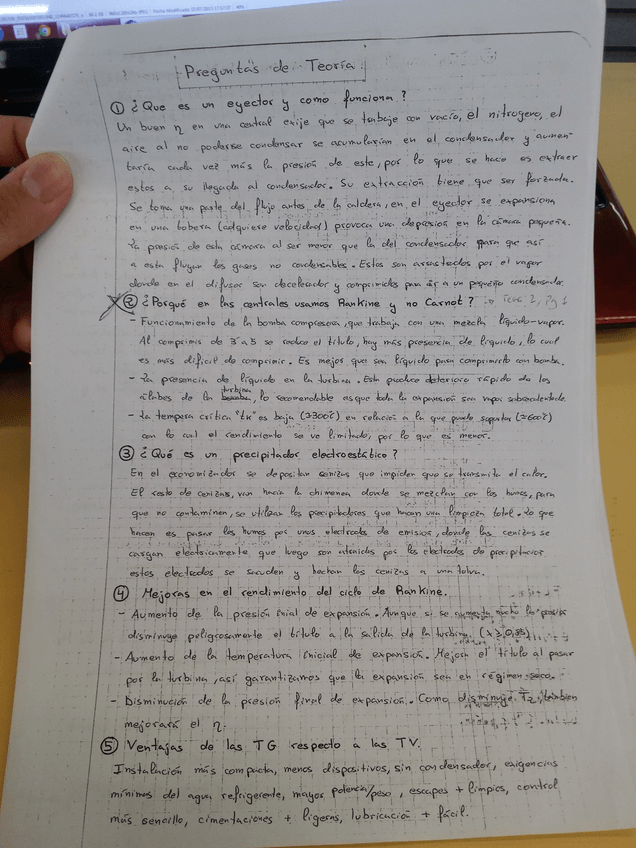 Preguntas de Teoría.
① ¿Que es un eyector y como funciona?
Un buen η en una central exije que se trabaje con vacío, el nitrogeno, el
aire al no poderse condensar se acumularian en el condensador y aumen-
taría cada vez más la presión de este, por lo que se hace es extraer
estos a su llegada al condensador. Su extracción tiene que ser forzada.
Se toma una parte del flujo antes de la caldera, en el eyector se expansiona
en una tobera (adquiere velocidad) provoca una depresión en la cámara pequeña.
La presión de esta cámara al ser menor que la del condensador para que así
a esta fluyan los gases no condensables. Estos son arrastrados por el vapor
donde en el difusor son decelerados y comprimidos para ir a un pequeño condensador.
② ¿Porqué en las centrales usamos Rankine y no Carnot?
- Funcionamiento de la bomba compresora, que trabaja con una mezcla líquido-vapor.
Al comprimir de 3 a 5 se reduce el título, hay más presencia de líquido, lo cual
es más dificil de comprimir. Es mejor que sea líquido para comprimirlo con bomba.
- La presencia de líquido en la turbina. Esto produce deterioro rápido de los
álabes de la turbina, lo recomendable es que toda la expansión sea vapor sobrecalentado.
- La tempera crítica "tk" es baja (≈300℃) en relación a la que puede soportar (≈600℃)
con lo cual el rendimiento se ve limitado, por lo que es menor.
③ ¿Qué es un precipitador electroestático?
En el economizador se depositan cenizas que impiden que se transmita el calor.
El resto de cenizas, van hacia la chimenea donde se mezclan con los humos, para
que no contaminen, se utilizan los precipitadores que hacen una limpieza total. Lo que
hacen es pasar los humos por unos electrodos de emisión, donde las cenizas se
cargan electricamente que luego son atraidos por los electrodos de precipitación
estos electrodos se sacuden y hechan las cenizas a una tolva.
④ Mejoras en el rendimiento del ciclo de Rankine.
- Aumento de la presión inial de expansión. Aunque si se aumenta mucho la presión
disminuye peligrosamente el título a la salida de la turbina.
- Aumento de la temperatura inicial de expansión. Mejora el título al pasar
por la turbina, así garantizamos que la expansión sea en régimen seco.
- Disminución de la presión final de expansión. Como disminuye T2, tambien
mejorará el η.
⑤ Ventajas de las TG respecto a las TV.
Instalación más compacta, menos dispositivos, sin condensador, exigencias
mínimas del agua refrigerente, mayor potencia/peso, escapes + limpios, control
más sencillo, cimentaciones + ligeras, lubricación + fácil.